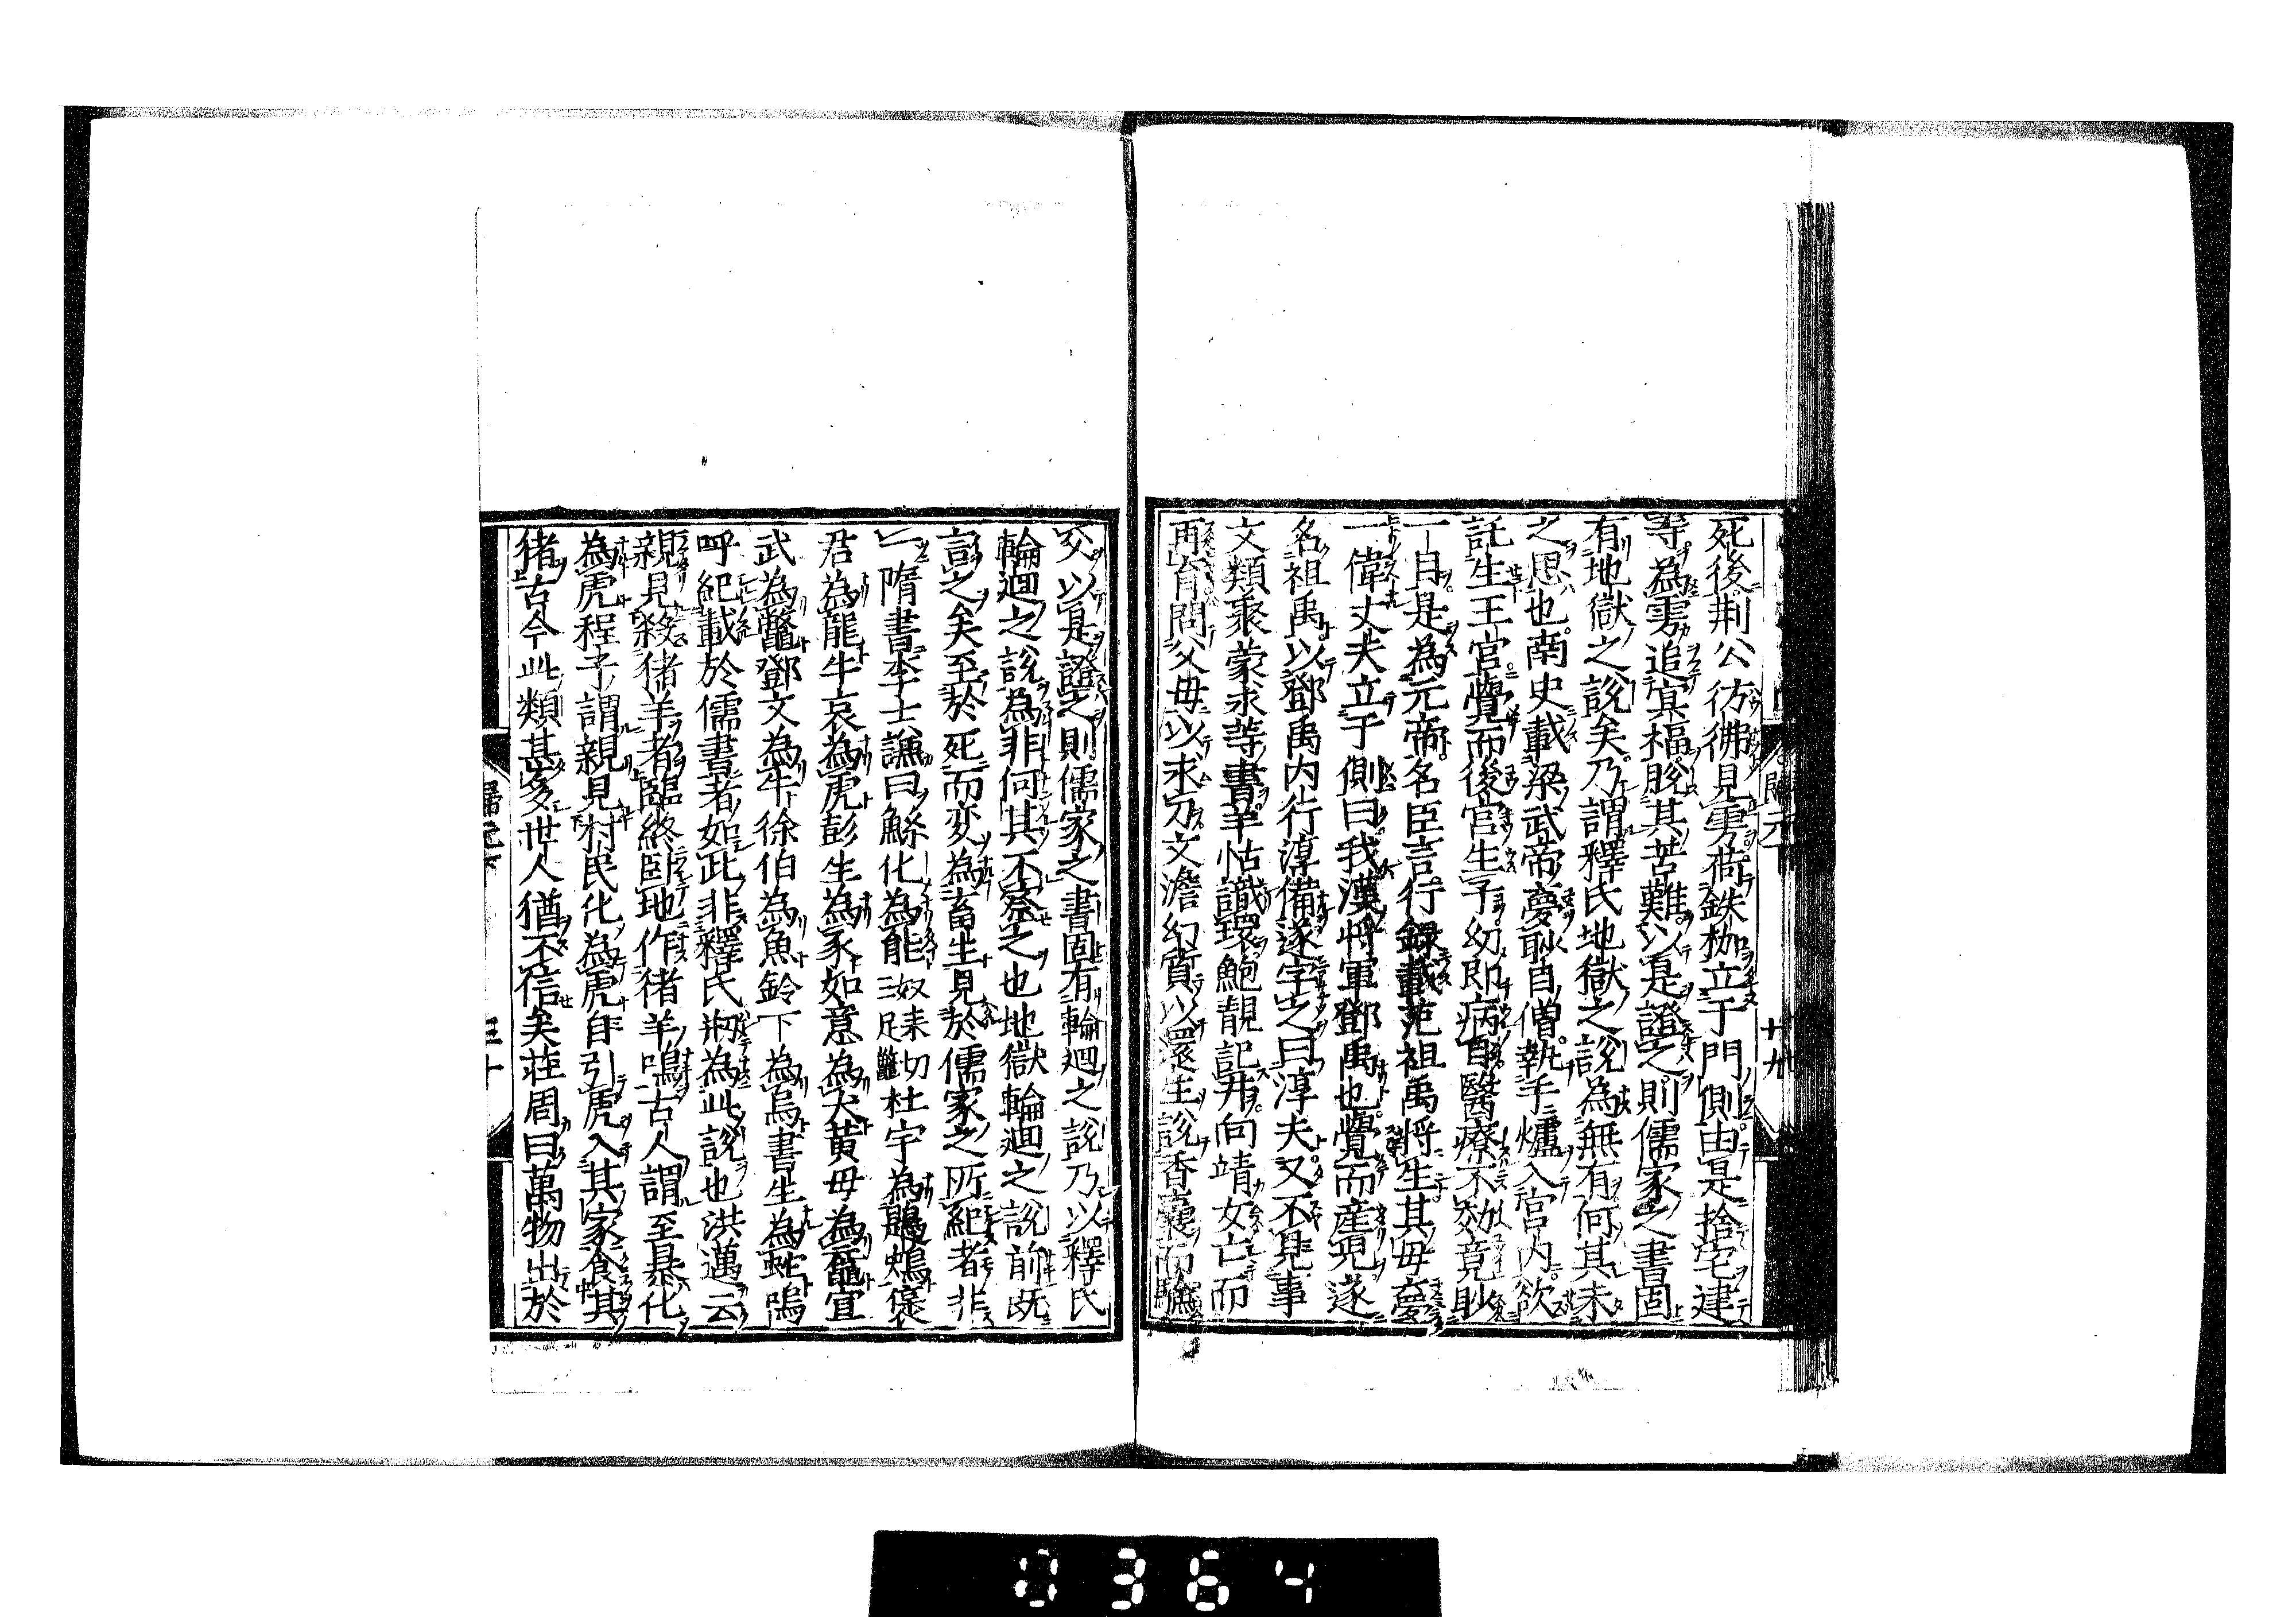 死後荆公彷彿見雱荷鉄枷立于門側由是捨宅建
寺為雱追冥福脫其苦難以是證之則儒家之書固
有地獄之說矣乃謂釋氏地獄之說為無有何其未
之思也南史載梁武帝夢眇目僧執手爐入宮内欲
託生王宮覺而後宮生子幼即病目醫療不效竟眇
一目是為元帝名臣言行録載范祖禹將生其母夢
一偉丈夫立于側曰我漢將軍鄧禹也覺而產兒遂
名祖禹以鄧禹内行淳備遂字之曰淳夫又不見事
文類聚蒙求等書羊怙識環鮑靚記井向靖女亡而
再育問父母以求刀文澹幻質以還生說香囊而驗
父以是證之則儒家之書固有輪迴之說乃以釋氏
輪迴之說為非何其不察之也地獄輪迴之說前既
言之矣至於死而変為畜生見於儒家之所紀者非
一隋書李士謙曰鯀化為能奴來切三足鼈杜宇為鶗鴂褒
君為龍牛哀為虎彭生為豕如意為犬黄母為黿宣
武為鼈鄧文為牛徐伯為魚鈴下為烏書生為蛇嗚
呼紀載於儒書者如此非釋氏剏為此說也洪邁云
親見殺猪羊者臨終臥地作猪羊鳴古人謂至暴化
為虎程子謂親見村民化為虎自引虎入其家食其
猪古今此類甚多世人猶不信矣莊周曰萬物出於
歸元下
三十
廿九
0364